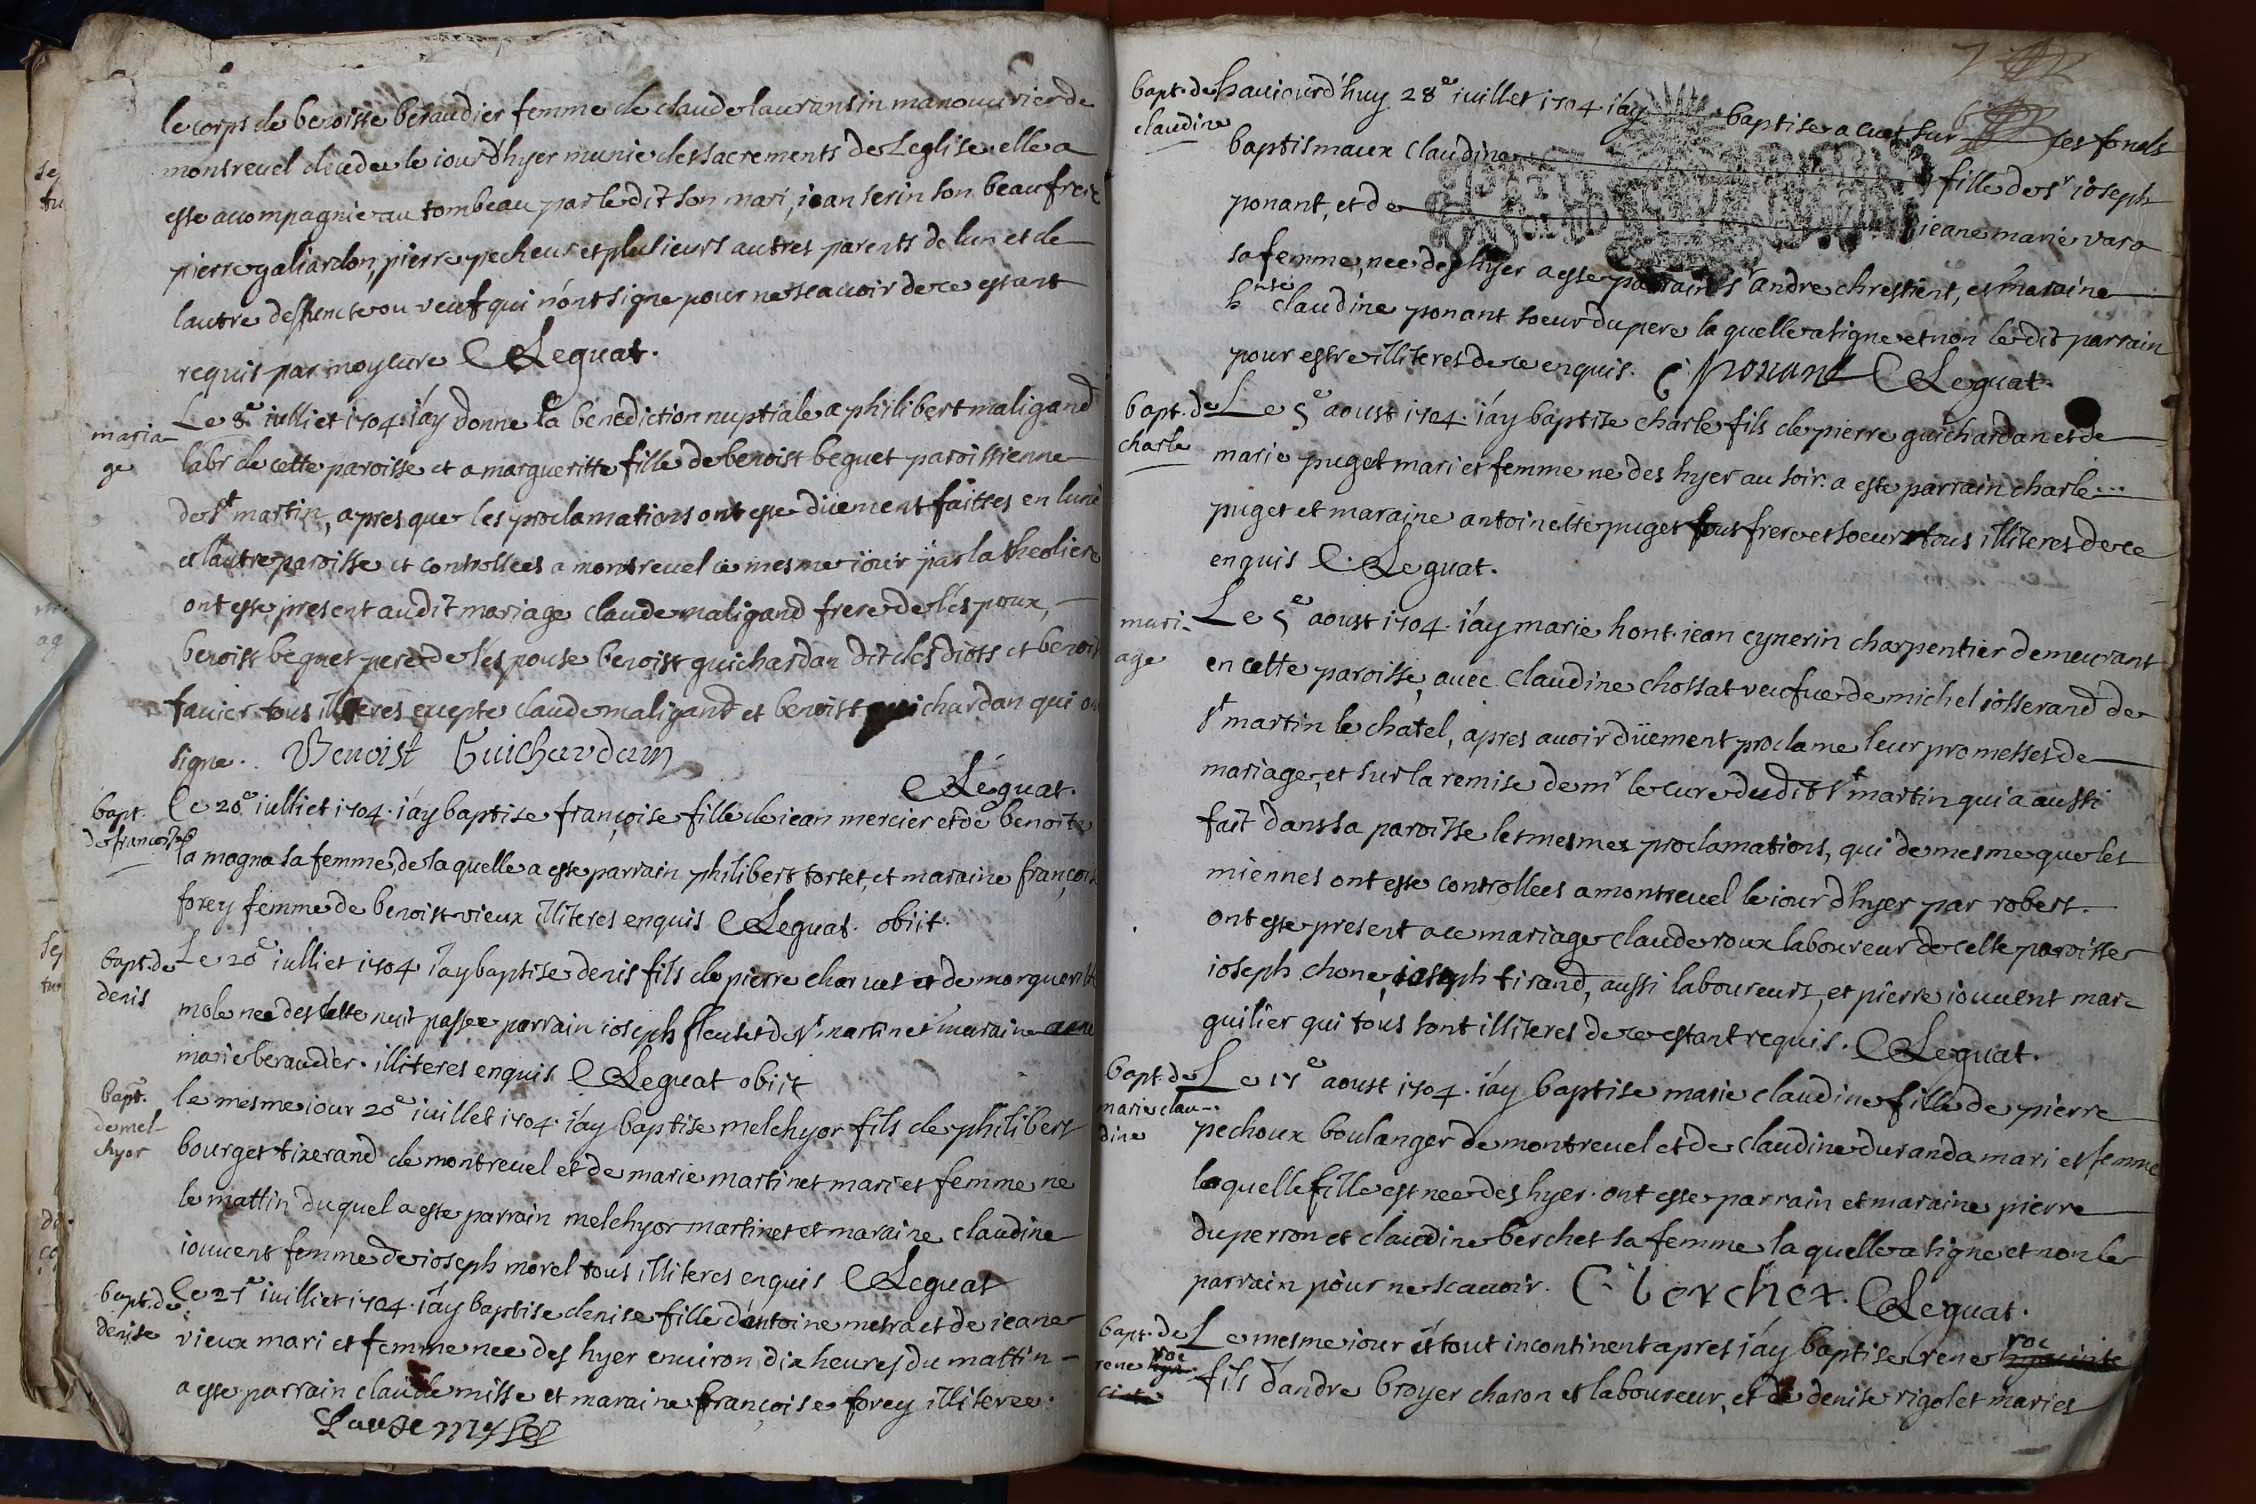 le corps de benoiste beraudier femme de claude lauransin manouvrier de
montrevel decedee le iour dhyer munie des sacrements de Leglise elle a
este accompagnie au tombeau par ledit son mari, iean serin son beau frere
pierre galiardon, pierre pecheur et plusieurs autres parents de lun et de
lautre deffuncte ou veuf qui n'ont signe pour ne scavoir de ce estant
requis par moy cure Leguat.
maria-
ge
Le 8e iulliet 1704. i'ay donne la benediction nuptiale a philibert maligand
labr de cette paroisse et a margueritte fille de benoist beguet paroissienne
de st martin, apres que les proclamations ont este düement faittes en lune
et lautre paroisse et controllees a montrevel ce mesme iour par la theoliere
ont este present audit mariage claude maligand frere de l'espoux,
benoist beguet pere de l'espouse benoist guichardan dit des diots et benoist
favier tous illiteres excepte claude maligand et benoist guichardan qui ont
signe. Benoist Guichardan
Leguat.
bapt.
de francoise
Le 20e iulliet 1704. i'ay baptise françoise fille de iean mercier et de benoite
la magna sa femme, de laquelle a este parrain philibert torset, et maraine françoise
forey femme de benoist vieux illiteres enquis Leguat. obiit.
bapt. de
denis
Le 20e iulliet 1704 i'ay baptise denis fils de pierre charvet et de margueritte
mole nee des cette nuit passee parrain ioseph fleuret de st martin et maraine
marie beraudier. illiteres enquis Leguat obiit
bapt.
de mel-
chyor
le mesme iour 20e iuillet 1704. i'ay baptise melchyor fils de philibert
bourget tixerand de montrevel et de marie martinet mari et femme ne
le mattin duquel a este parrain melchyor martinet et maraine claudine
iouvent femme de ioseph morel tous illiteres enquis Leguat
bapt. de
denise
Le 21e iuilliet 1704. i'ay baptise denise fille d'antoine metra et de ieane
vieux mari et femme nee des hyer environ dix heures du mattin
a este parrain claude misse et maraine françoise forey illiteree.
bapt. de
claudine
haujourd'huy 28e iuillet 1704 i'ay baptise sur les fonds
baptismaux claudine fille de sr ioseph
ponant, et de ieane marie vara
sa femme, nee des hyer a este parrain sr andre chrestient, et maraine
hnste claudine ponant soeur du pere laquelle a signe et non ledit parrain
pour estre illiteres de ce enquis. C ponant Leguat.
bapt. de
charle
Le 5e aoust 1704. i'ay baptise charle fils de pierre guichardan et de
marie puget mari et femme ne des hyer au soir. a este parrain charle
puget et maraine antoinette puget frere et soeur tous illiteres de ce
enquis Leguat.
mari-
age
Le 5e aoust 1704. i'ay marie hont. iean cynerin charpentier demeurant
en cette paroisse, avec claudine chossat veufue de michel iosserand de
st martin le chatel, apres avoir düement proclame leur promesses de
mariage, et sur la remise de mr le cure dudit st martin qui a aussi
fait dans sa paroisse les mesmes proclamations, qui de mesme que les
miennes ont este controllees a montrevel le iour d'hyer par robert.
ont este present a ce mariage claude roux laboureur de cette paroisse
ioseph chone, ioseph tirand, aussi laboureurs, et pierre iouvent mar-
guilier qui tous sont illiteres de ce estant requis. Leguat.
bapt. de
marie clau-
dine
Le 15e aoust 1704. i'ay baptise marie claudine fille de pierre
pechoux boulanger de montrevel et de claudine duranda mari et femme
laquelle fille est nee des hyer. ont este parrain et maraine pierre
duperron et claudine berchet sa femme laquelle a signe et non le
parrain pour ne scavoir. C. berchet. Leguat.
bapt. de
rene roc
Le mesme iour et tout incontinent apres i'ay baptise rene roc
fils d'andre broyer charon et laboureur, et de denise rigolet maries